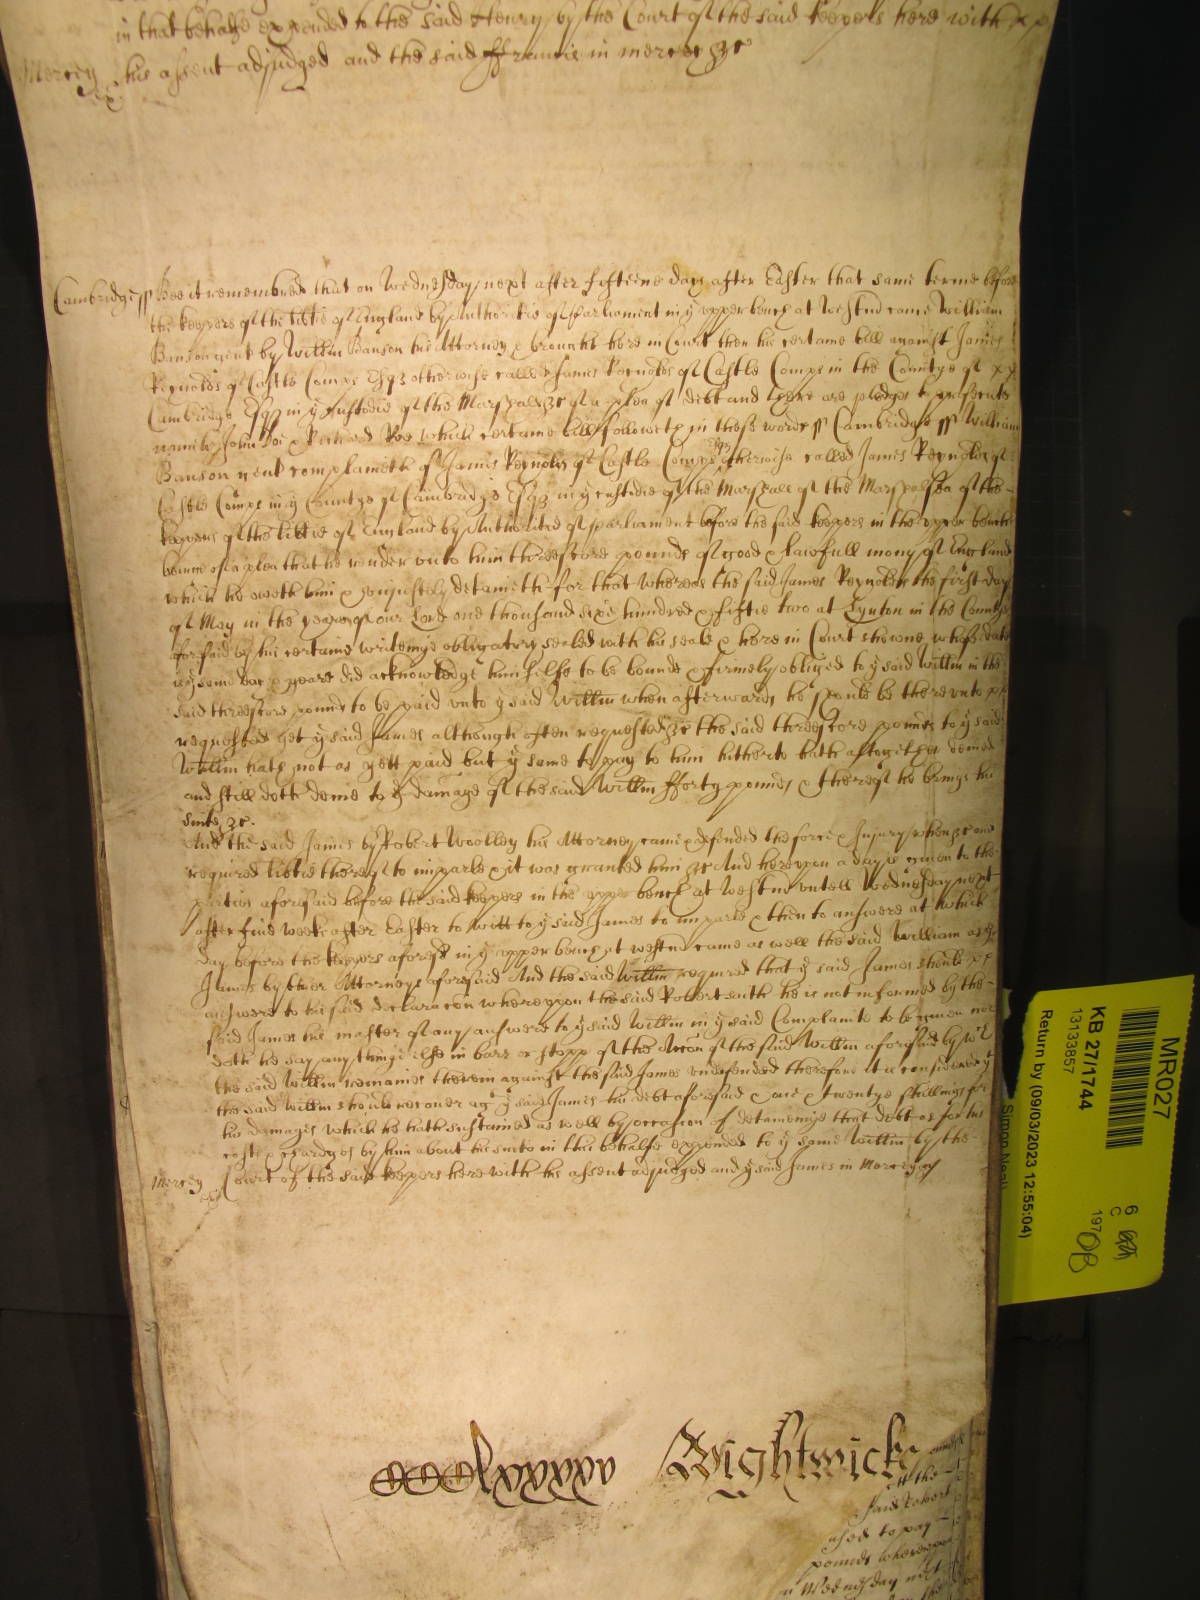 in that behalfe expended to the said Henry by the Court of the said keepers here with
Mercey his assent adjudged and the said ffrancis in mercy &c
Cambridge ss Bee it remembred that on Wednesday next after fifteene dayes after Easter that same terme before
the keepers of the libtie of England by Authoritie of parliament in ye upper bench at Westm came William
Banson gent by Willm Banson his Attorney & brought here in Court then his certaine bill against James
Reynolds of Castle Comps Esqr otherwise called James Reynolds of Castle Comps in the Countye of
Cambridge Esqr in ye custodie of the Marshall &c of a plea of debt and there are pledges to prosecute
namely John Doe & Richard Roe which certaine bill followeth in these words ss Cambridge ss William
Banson gent complaineth of James Reynolds of Castle Comps Esqr otherwise called James Reynolds of
Castle Comps in ye Countye of Cambridge Esqr in ye custodie of the Marshall of the Marshalsea of the
keepers of the libtie of England by Authoritie of parliament before the said keepers in the upper bench
beinge of a plea that he render unto him threescore pounds of good & lawfull mony of England
which he oweth him & uniustely detaineth for that whereas the said James Reynolds the first day
of May in the yeare of our Lord one thousand sixe hundred & fiftie two at Lynton in the Countye
aforesaid by his certaine writeinge obligatory sealed with his seale & here in Court showne whose date
is ye same day & yeare did acknowledge himselfe to be bounde & firmely obliged to ye said Willm in the
said threescore pounds to be paid unto ye said Willm when afterwards he should be thereunto
requested yet ye said James although often requested &c the said threescore pounds to ye said
Willm hath not as yett paid but ye same to pay to him hitherto hath altogether denied
and still doth denie to ye damage of the said Willm fforty pounds & thereof he brings his
suite &c.
And the said James by Robert Woolley his Attorney came & defended the force & Injury when &c and
required libtie thereof to imparle & it was granted him &c And hereupon a day is given to the
parties aforesaid before the said keepers in the upper bench at Westm untill Wednesday next
after five weeks after Easter to witt to ye said James to imparle & then to answere at which
day before the keepers aforesd in ye upper bench at Westm came as well the said William as ye
James by their Attorneys aforesaid And the said Willm required that ye said James should
answere to his said declaracon whereupon the said Robert saith he is not informed by the
said James his master of any answere to ye said Willm in ye said Complainte to be given nor
doth he say any thinge else in barr or stopp of the Accon of the said Willm aforesaid by wch
the said Willm remaines therein against the said James undefended therefore it is considered yt
the said Willm should recover agt ye said James his debt aforesaid & twentye shillings for
his damages which he hath sustained as well by occasion of detaineinge that debt as for his
costs & chardges by him about his suite in this behalfe expended to ye same Willm by the
Mercey Court of the said keepers here with his assent adjudged and ye said James in Mercy &c
Wightwick
MR027
KB 27/1744
13133857
Return by (09/03/2023 12:55:04)
6
C
197